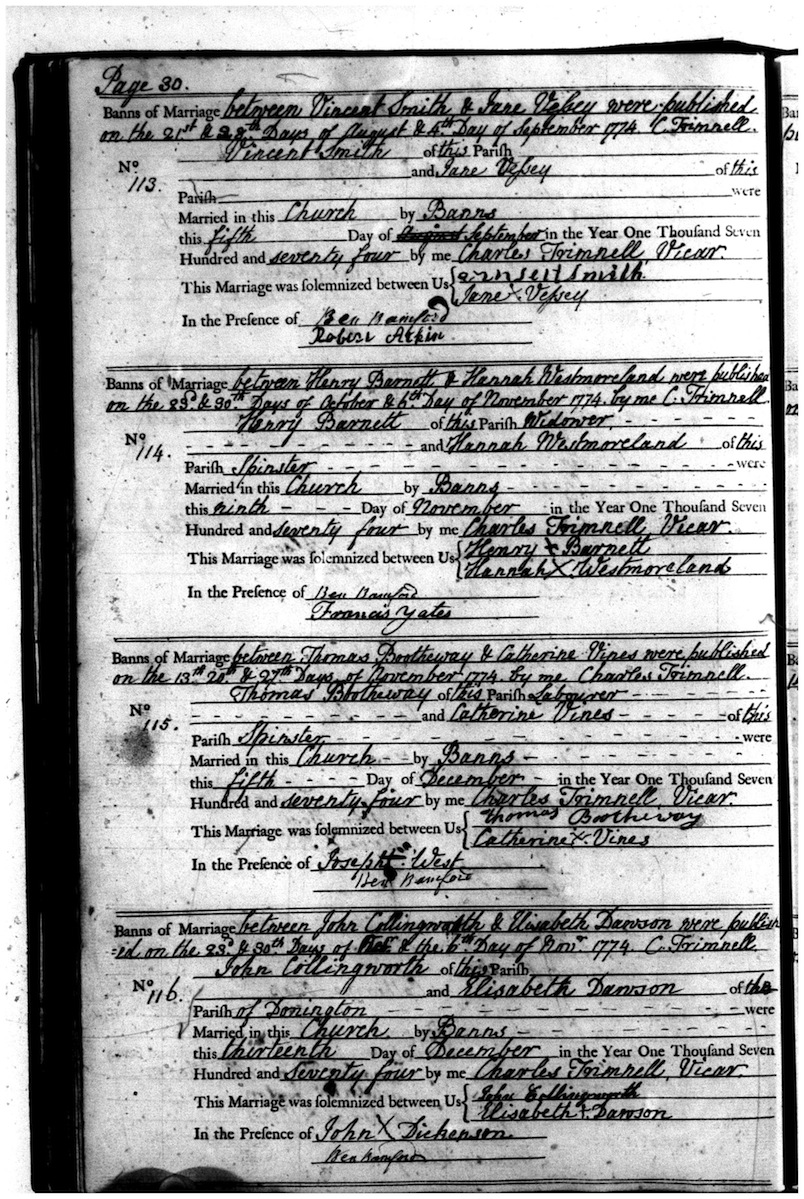 Page 30.
Banns of Marriage between Vincent Smith & Jane Veſsey were published
on the 21st & 28th Days of August & 4th Day of September 1774. C. Trimnell.
Vincent Smith of this Pariſh
No 113.
and Jane Veſsey of this
Pariſh were
Married in this Church by Banns
this fifth Day of August September in the Year One Thouſand Seven
Hundred and seventy four by me Charles Trimnell, Vicar.
This Marriage was ſolemnized between Us Smith
Jane X Veſsey
In the Preſence of Ben Bamford
Robert Atkin
Banns of Marriage between Henry Barnett & Hannah Westmoreland were published
on the 23d & 30th Days of October & 6th Day of November 1774. by me C. Trimnell.
Henry Barnett of this Pariſh Widower
No 114.
and Hannah Westmoreland of this
Pariſh Spinster were
Married in this Church by Banns
this ninth Day of November in the Year One Thouſand Seven
Hundred and seventy four by me Charles Trimnell, Vicar
This Marriage was ſolemnized between Us Henry X Barnett
Hannah X Westmoreland
In the Preſence of Ben Bamford
Francis Yates
Banns of Marriage between Thomas Bootheway & Catherine Vines were published
on the 13th 20th & 27th Days of November 1774 by me Charles Trimnell.
Thomas Bootheway of this Pariſh Labourer
No 115.
and Catherine Vines of this
Pariſh Spinster were
Married in this Church by Banns
this fifth Day of December in the Year One Thouſand Seven
Hundred and seventy four by me Charles Trimnell, Vicar.
This Marriage was ſolemnized between Us Thomas Bootheway
Catherine X Vines
In the Preſence of Joseph West
Ben Bamford
Banns of Marriage between John Collingworth & Elisabeth Dawson were publish
=ed on the 23d & 30th Days of Octr & the 6th Day of Novr 1774. C. Trimnell
John Collingworth of this Pariſh
No 116.
and Elisabeth Dawson of the
Pariſh of Donington were
Married in this Church by Banns
this thirteenth Day of December in the Year One Thouſand Seven
Hundred and seventy four by me Charles Trimnell, Vicar
This Marriage was ſolemnized between Us John Collingworth
Elisabeth X Dawson
In the Preſence of John X Dickenson
Ben Bamford